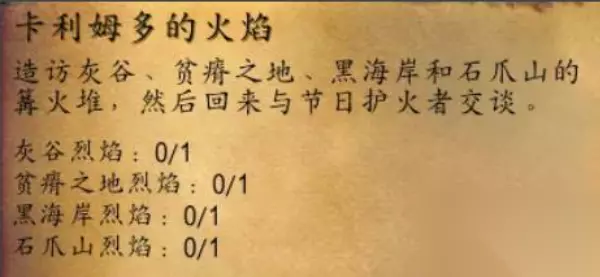 卡利姆多的火焰
造访灰谷、贫瘠之地、黑海岸和石爪山的
篝火堆，然后回来与节日护火者交谈。
灰谷烈焰：0/1
贫瘠之地烈焰：0/1
黑海岸烈焰：0/1
石爪山烈焰：0/1